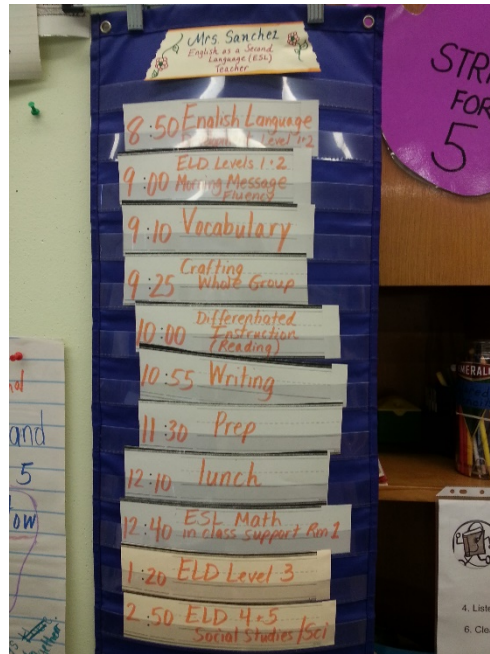 Mrs. Sanchez
English as a Second
Language (ESL)
Teacher
STRI
FOR
5
8:50 English Language
Level 1+2
ELD Levels 1+2
9:00 Morning Message
Fluency
9:10 Vocabulary
Crafting
9:25 Whole Group
Differentiated
10:00 Instruction
(Reading)
10:55 Writing
11:30 Prep
12:10 lunch
ESL Math
12:40 in class support Rm 1
1:20 ELD Level 3
2:50 ELD 4+5
Social Studies/Sci
and
5
low
MERAL
4. Liste
6. Cle